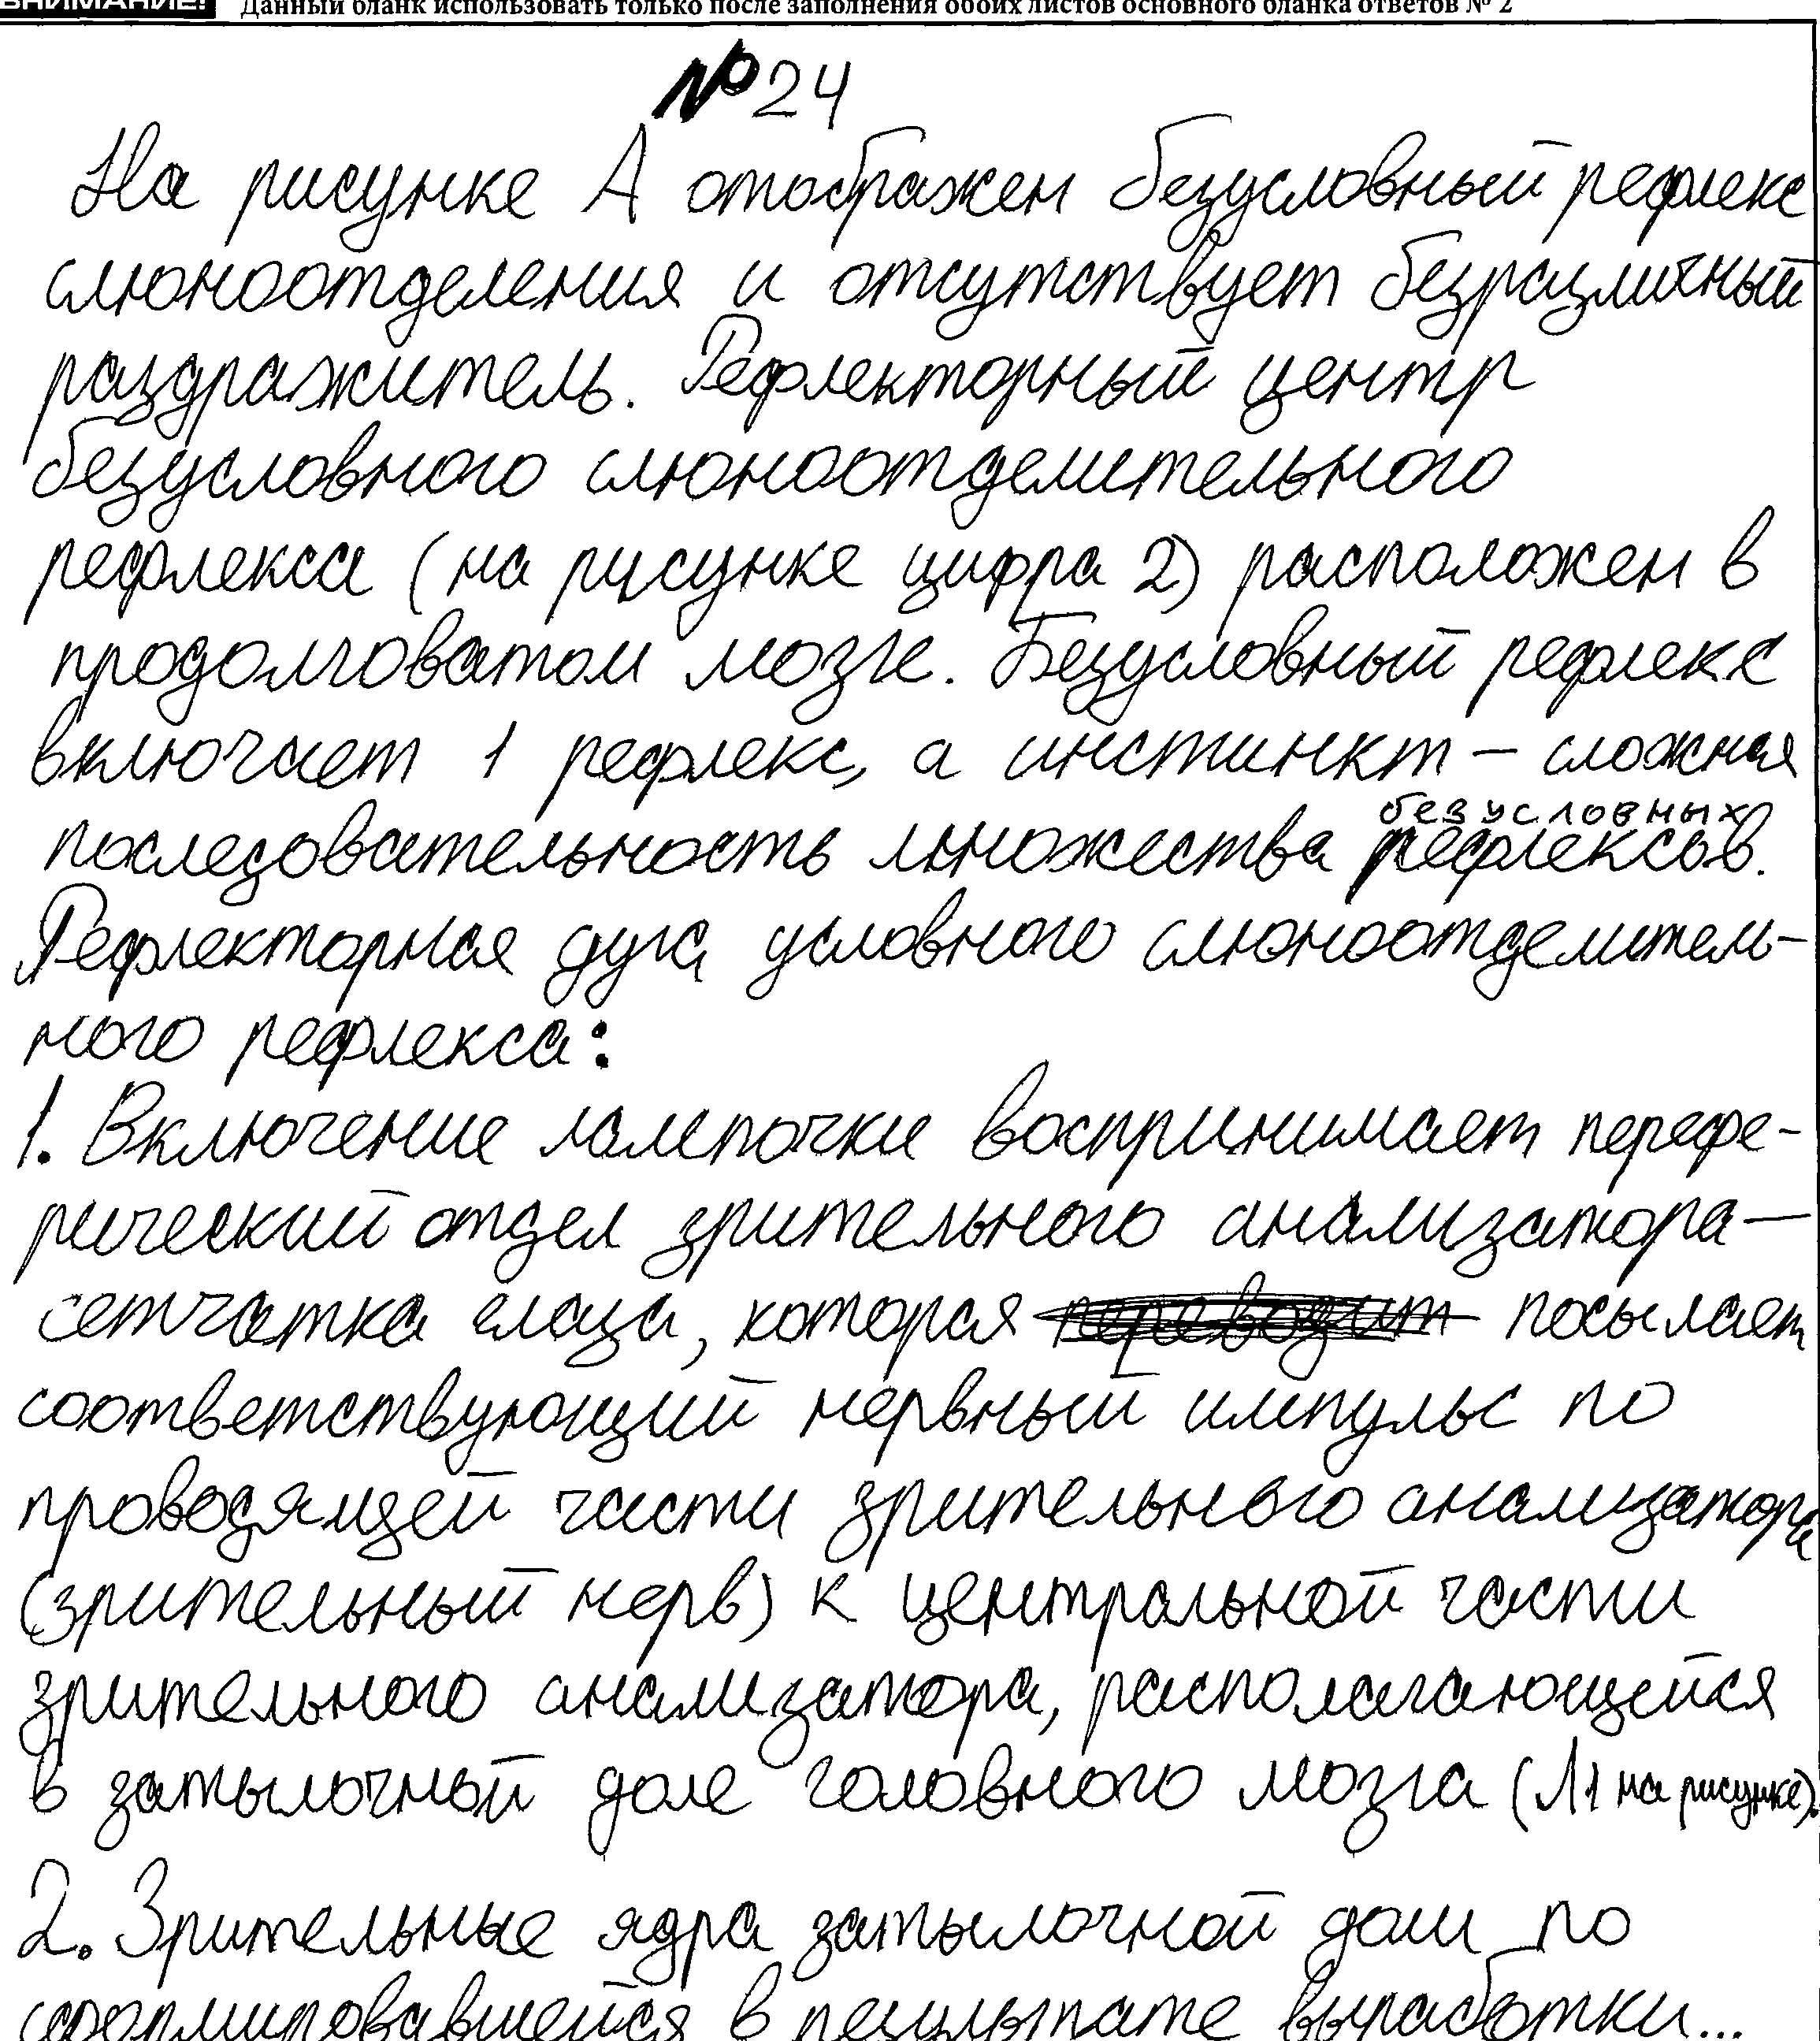 ВНИМАНИЕ! Данный бланк использовать только после заполнения обоих листов основного бланка ответов № 2
№24
На рисунке А отображен безусловный рефлекс
слюноотделения и отсутствует безразличный
раздражитель. Рефлекторный центр
безусловного слюноотделительного
рефлекса (на рисунке цифра 2) расположен в
продолговатом мозге. Безусловный рефлекс
включает 1 рефлекс, а инстинкт – сложная
последовательность множества безусловных рефлексов.
Рефлекторная дуга условного слюноотделитель-
ного рефлекса:
1. Включение лампочки воспринимает перефе-
рический отдел зрительного анализатора –
сетчатка глаза, которая переводит посылает
соответствующий нервный импульс по
проводящей части зрительного анализатора
(зрительный нерв) к центральной части
зрительного анализатора, располагающейся
в затылочной доле головного мозга (Л1 на рисунке).
2. Зрительные ядра затылочной доли по
сформировавшейся в результате выработки...